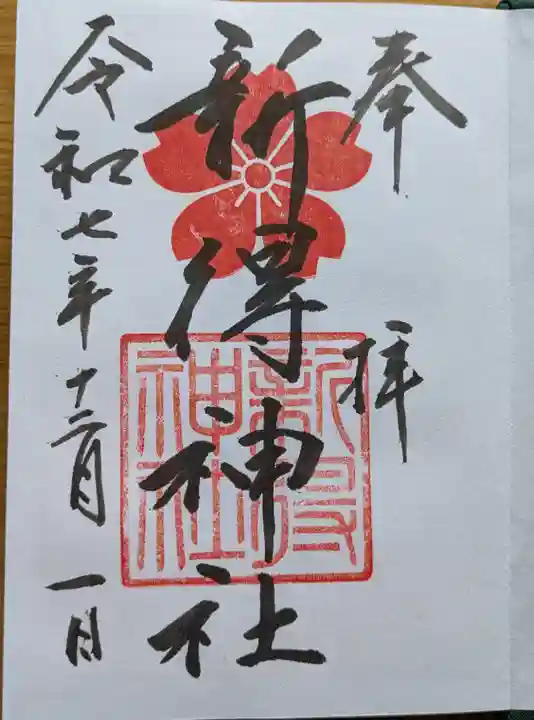 奉拝
新得神社
新得神社
令和七年十二月一日